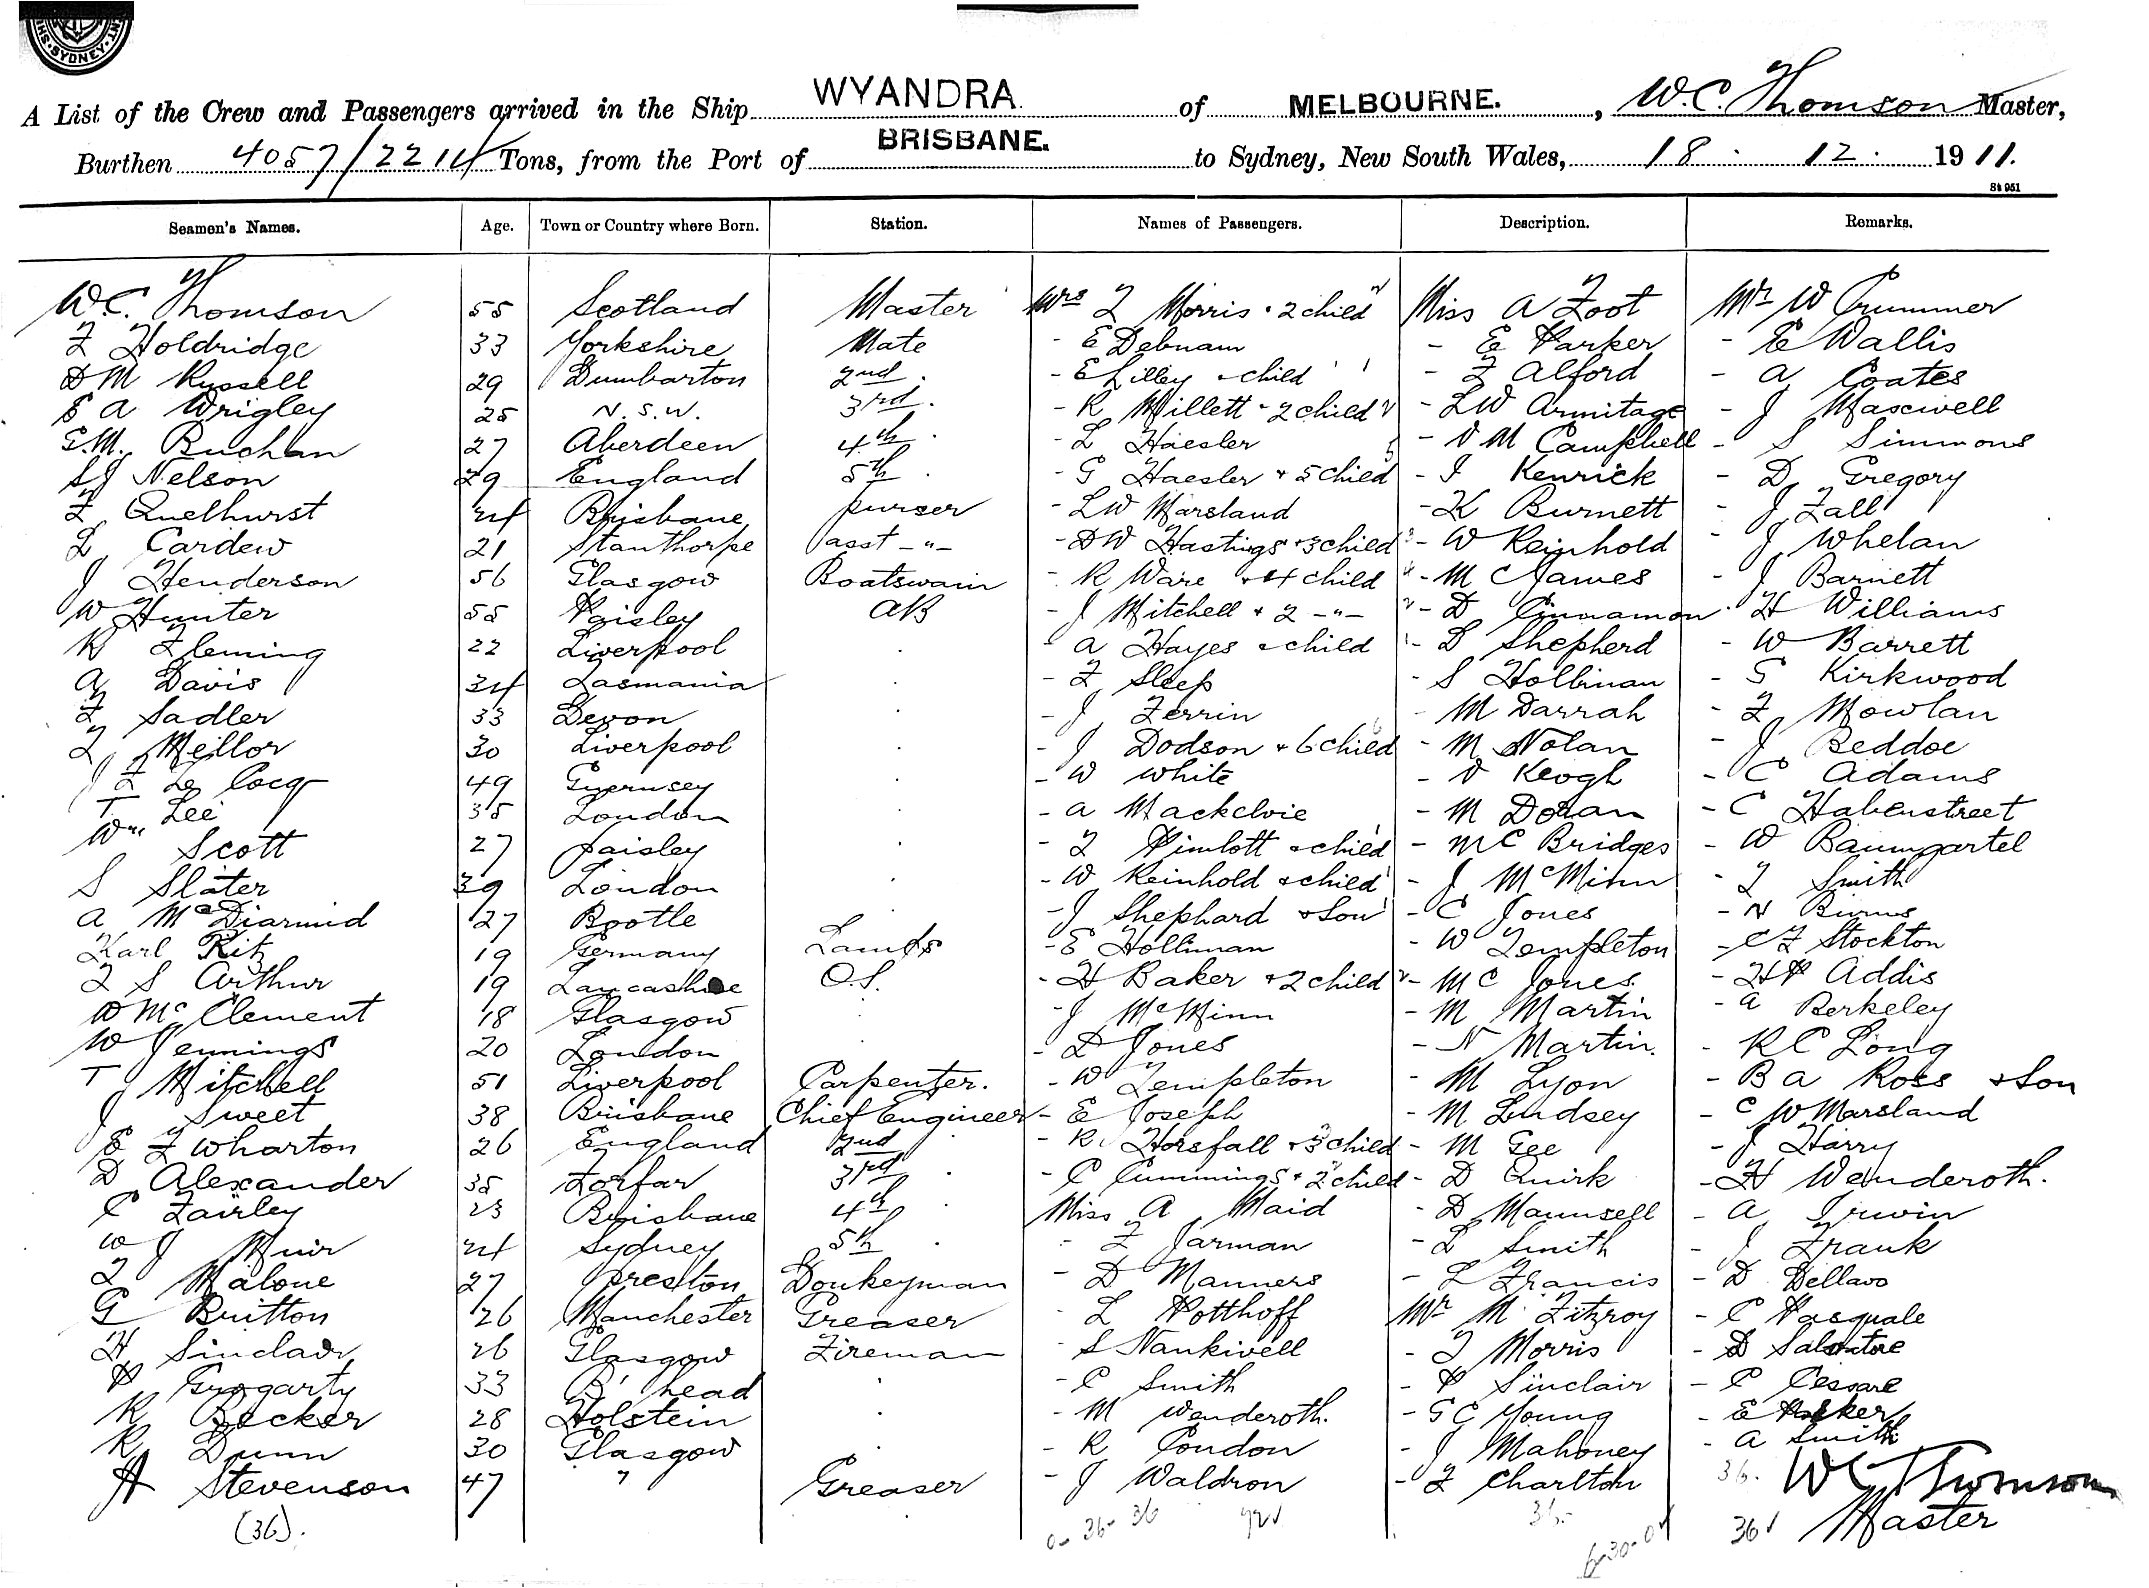 SYDNEY
A List of the Crew and Passengers arrived in the Ship WYANDRA. of MELBOURNE. , W.C. Thomson Master,
Burthen 4057/2214 Tons, from the Port of BRISBANE. to Sydney, New South Wales, 18. 12. 1911.
Seamen's Names. Age. Town or Country where Born. Station. Names of Passengers. Description. Remarks.
W.C. Thomson 55 Scotland Master Mrs T Morris + 2 child Miss A Foot Mr W Crummer
F Holdridge 33 Yorkshire Mate - E Debnam - E Parker - E Wallis
D M Russell 29 Dumbarton 2nd - E Lilley + child - F Alford - A Coates
E A Wrigley 25 N.S.W. 3rd - R Millett + 2 child - L W Armitage - J Maxwell
G.M. Buchan 27 Aberdeen 4th - L Haesler - V M Campbell - S Simmons
S J Nelson 29 England 5th - G Haesler + 5 child - I Kenrick - D Gregory
F Quelhurst 24 Brisbane purser - L W Marsland - K Burnett - J Fall
L Cardew 21 Stanthorpe asst -"- - D W Hastings + 3 child - W Reinhold - J Whelan
J Henderson 56 Glasgow Boatswain - R Ware + 4 child - M C James - J Barnett
W Hunter 55 Paisley AB - J Mitchell + 2 -"- - D Cinnamon H Williams
R Fleming 22 Liverpool - A Hayes + child - L Shepherd - W Barrett
A Davis 34 Tasmania - F Sleep - S Holliman - G Kirkwood
F Sadler 33 Devon - J Ferrin M Darrah - F Mowlan
T Mellor 30 Liverpool - J Dodson + 6 child - M Nolan - J Beddoe
J F Le Cocq 49 Guernsey - W White - V Keogh - C Adams
T Lee 35 London - A Mackelvie - M Doran - C Habenstreet
Wm Scott 27 Paisley - T Pimlott + child - M C Bridges - W Baumgartel
S Slater 39 London - W Reinhold + child - J McMinn - T Smith
A McDiarmid 27 Bootle - J Shephard + Son - C Jones - N Burns
Karl Ritz 19 Germany Lamps - E Holliman - W Templeton - C F Stockton
T S Arthur 19 Lancashire O.S. - H Baker + 2 child - M C Jones - H P Addis
D McClement 18 Glasgow - J McMinn - M Martin - A Berkeley
W Jennings 20 London - D Jones - N Martin. - R C Long
T J Mitchell 51 Liverpool Carpenter. - W Templeton - M Lyon - B A Ross + Son
J Sweet 38 Brisbane Chief Engineer - E Joseph - M Lindsey - C W Marsland
E F Wharton 26 England 2nd - R Horsfall + 3 child - M Gee - J Harry
D Alexander 35 Forfar 3rd - C Cummings + 2 child - D Quirk - H Wenderoth.
C Fairley 23 Brisbane 4th Miss A Maid - D Maunsell - A Irwin
W J Muir 24 Sydney 5th - F Jarman - L Smith - J Frank
T Malone 27 Preston Donkeyman - D Manners - L Francis - D Dellavo
G Britton 26 Manchester Greaser - L Potthoff Mr M Fitzroy - C Pasquale
H Sinclair 26 Glasgow Fireman - S Nankivell - T Morris - D Salvatore
P Grogarty 33 B'head - C Smith - P Sinclair - C Cessare
R Becker 28 Holstein - M Wenderoth. - G C Young - E Parker
R Dunn 30 Glasgow - R Condon - J Mahoney - A Smith
A Stevenson 47 " Greaser - J Waldron - F Charlton 36. W C Thomson
(36). 0-36-36 36 Master